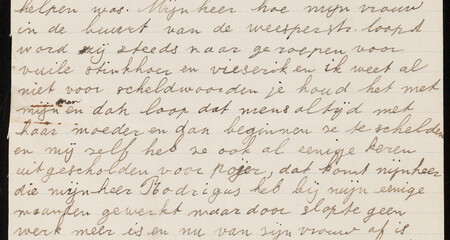 helpen was. Mijnheer hoe mijn vrouw
in de buurt van de weesperstr. loopt
word zij steeds naar geroepen voor
vuile stinkhoer en vieserik en ik weet al
niet voor scheldwoorden je houd het met
mijn man en dan loop dat mens altijd met
haar moeder en dan beginnen ze te schelden
en mij zelf heb ze ook al eenige keren
uitgescholden voor pojer, dat komt mijnheer
die mijnheer Rodrigus heb bij mijn eenige
maanden gewerkt maar door slapte geen
werk meer is en nu van zijn vrouw af is